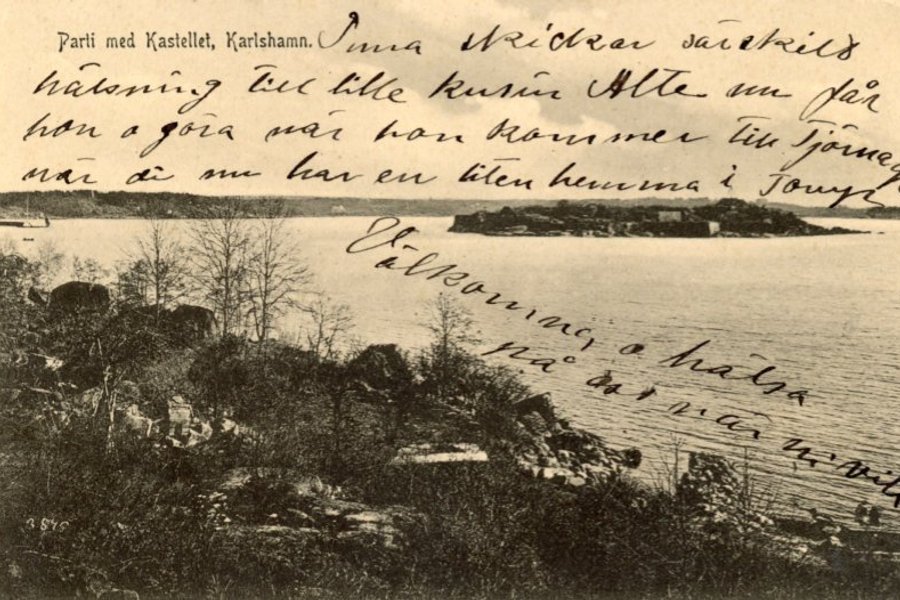 Parti med Kastellet, Karlshamn. Inna skickar särskild
hälsning till lille kusin Alte nu får
hon o göra när hon kommer till
när di nu har en liten hemma i
Välkomna, o hälsa
på os i när ni vill